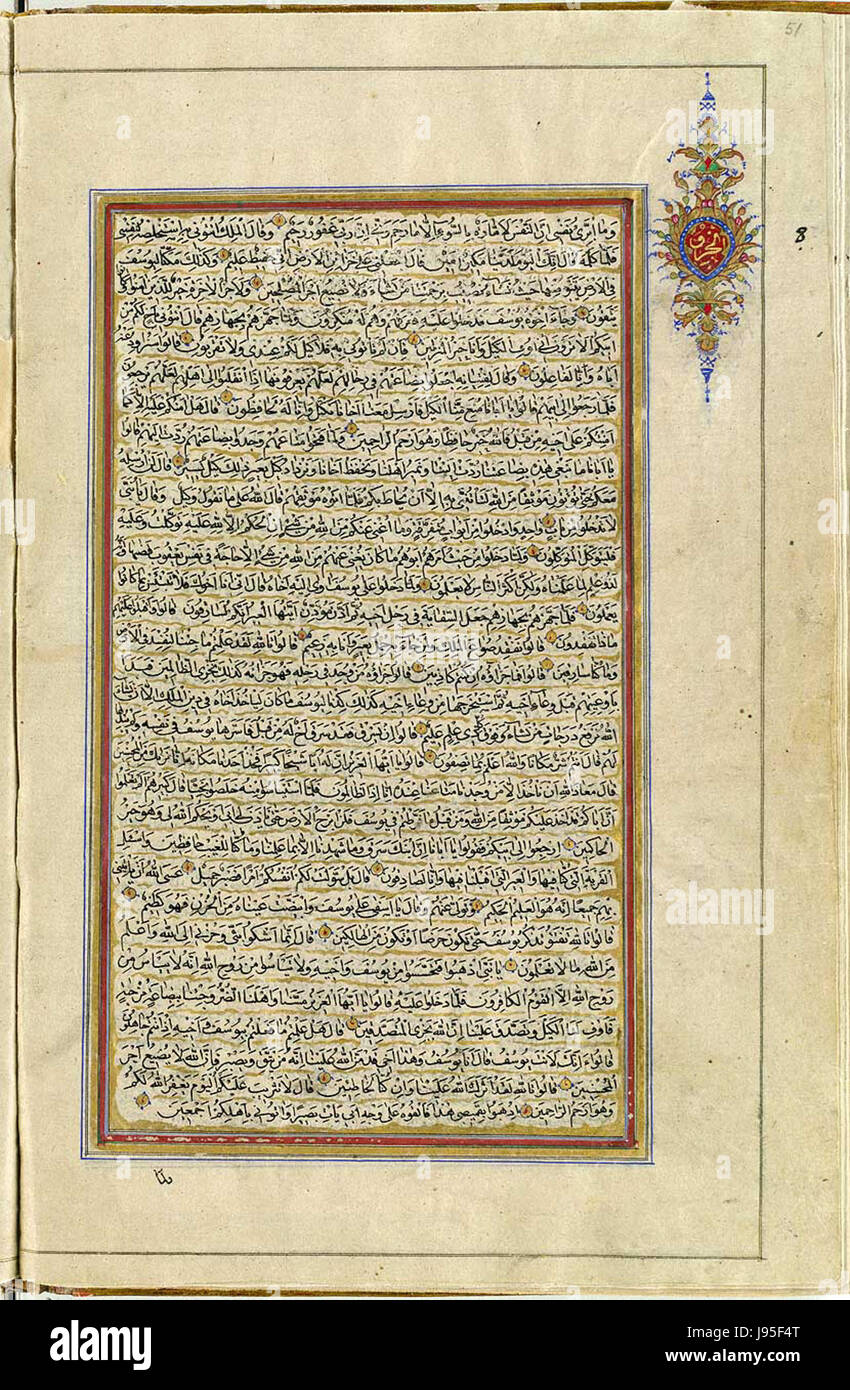 وما ابرئ نفسي ان النفس لامارة بالسوء الا ما رحم ربي ان ربي غفور رحيم وقال الملك ائتوني به استخلصه لنفسي
فلما كلمه قال انك اليوم لدينا مكين امين قال اجعلني على خزائن الارض اني حفيظ عليم وكذلك مكنا ليوسف
في الارض يتبوء منها حيث يشاء نصيب برحمتنا من نشاء ولا نضيع اجر المحسنين ولاجر الاخرة خير للذين امنوا وكانوا
يتقون وجاء اخوة يوسف فدخلوا عليه فعرفهم وهم له منكرون ولما جهزهم بجهازهم قال ائتوني باخ لكم من
ابيكم الا ترون اني اوفي الكيل وانا خير المنزلين فان لم تاتوني به فلا كيل لكم عندي ولا تقربون قالوا سنراود عنه
اباه وانا لفاعلون وقال لفتيانه اجعلوا بضاعتهم في رحالهم لعلهم يعرفونها اذا انقلبوا الى اهلهم لعلهم يرجعون
فلما رجعوا الى ابيهم قالوا يا ابانا منع منا الكيل فارسل معنا اخانا نكتل وانا له لحافظون قال هل امنكم عليه الا كما
امنتكم على اخيه من قبل فالله خير حافظا وهو ارحم الراحمين ولما فتحوا متاعهم وجدوا بضاعتهم ردت اليهم قالوا
يا ابانا ما نبغي هذه بضاعتنا ردت الينا ونمير اهلنا ونحفظ اخانا ونزداد كيل بعير ذلك كيل يسير قال لن ارسله
معكم حتى تؤتون موثقا من الله لتاتنني به الا ان يحاط بكم فلما اتوه موثقهم قال الله على ما نقول وكيل وقال يا بني
لا تدخلوا من باب واحد وادخلوا من ابواب متفرقة وما اغني عنكم من الله من شيء ان الحكم الا لله عليه توكلت وعليه
فليتوكل المتوكلون ولما دخلوا من حيث امرهم ابوهم ما كان يغني عنهم من الله من شيء الا حاجة في نفس يعقوب قضيها وانه
لذو علم لما علمناه ولكن اكثر الناس لا يعلمون ولما دخلوا على يوسف اوى اليه اخاه قال اني انا اخوك فلا تبتئس بما كانوا
يعملون فلما جهزهم بجهازهم جعل السقاية في رحل اخيه ثم اذن مؤذن ايتها العير انكم لسارقون قالوا واقبلوا عليهم
ماذا تفقدون قالوا نفقد صواع الملك ولمن جاء به حمل بعير وانا به زعيم قالوا تالله لقد علمتم ما جئنا لنفسد في الارض
وما كنا سارقين قالوا فما جزاؤه ان كنتم كاذبين قالوا جزاؤه من وجد في رحله فهو جزاؤه كذلك نجزي الظالمين فبدا
باوعيتهم قبل وعاء اخيه ثم استخرجها من وعاء اخيه كذلك كدنا ليوسف ما كان لياخذ اخاه في دين الملك الا ان يشاء
الله نرفع درجات من نشاء وفوق كل ذي علم عليم قالوا ان يسرق فقد سرق اخ له من قبل فاسرها يوسف في نفسه ولم يبدها
لهم قال انتم شر مكانا والله اعلم بما تصفون قالوا يا ايها العزيز ان له ابا شيخا كبيرا فخذ احدنا مكانه انا نريك من المحسنين
قال معاذ الله ان ناخذ الا من وجدنا متاعنا عنده انا اذا لظالمون فلما استيئسوا منه خلصوا نجيا قال كبيرهم الم تعلموا
ان اباكم قد اخذ عليكم موثقا من الله ومن قبل ما فرطتم في يوسف فلن ابرح الارض حتى ياذن لي ابي او يحكم الله لي وهو خير
الحاكمين ارجعوا الى ابيكم فقولوا يا ابانا ان ابنك سرق وما شهدنا الا بما علمنا وما كنا للغيب حافظين واسئل
القرية التي كنا فيها والعير التي اقبلنا فيها وانا لصادقون قال بل سولت لكم انفسكم امرا فصبر جميل عسى الله ان ياتيني
بهم جميعا انه هو العليم الحكيم وتولى عنهم وقال يا اسفى على يوسف وابيضت عيناه من الحزن فهو كظيم
قالوا تالله تفتؤ تذكر يوسف حتى تكون حرضا او تكون من الهالكين قال انما اشكوا بثي وحزني الى الله واعلم
من الله ما لا تعلمون يا بني اذهبوا فتحسسوا من يوسف واخيه ولا تيئسوا من روح الله انه لا ييئس من
روح الله الا القوم الكافرون فلما دخلوا عليه قالوا يا ايها العزيز مسنا واهلنا الضر وجئنا ببضاعة مزجية
فاوف لنا الكيل وتصدق علينا ان الله يجزي المتصدقين قال هل علمتم ما فعلتم بيوسف واخيه اذ انتم جاهلون
قالوا ءانك لانت يوسف قال انا يوسف وهذا اخي قد من الله علينا انه من يتق ويصبر فان الله لا يضيع اجر
المحسنين قالوا تالله لقد اثرك الله علينا وان كنا لخاطئين قال لا تثريب عليكم اليوم يغفر الله لكم
وهو ارحم الراحمين اذهبوا بقميصي هذا فالقوه على وجه ابي يات بصيرا واتوني باهلكم اجمعين
51
8
alamy
Image ID: J95F4T
www.alamy.com